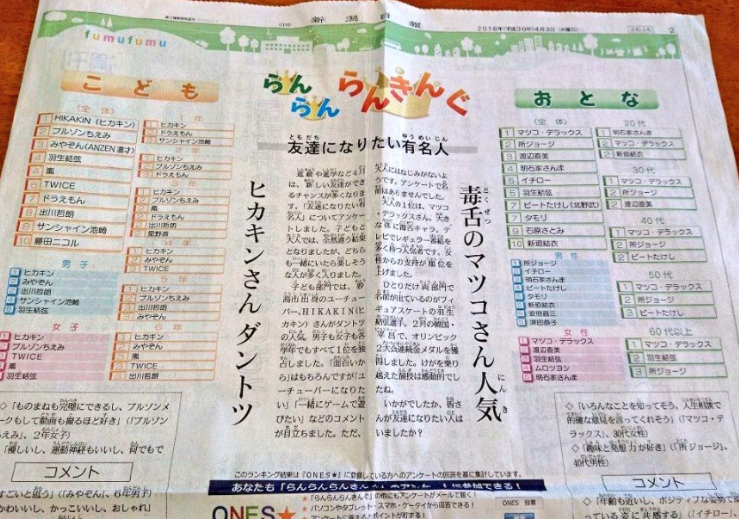 新潟日報
2018年(平成30年)4月3日(火曜日)
2
fumufumu
こども
らんらんらんきんぐ
ともだち
ゆうめいじん
友達になりたい有名人
おとな
(全体)
1 HIKAKIN(ヒカキン)
2 ブルゾンちえみ
3 みやぞん(ANZEN漫才)
4 羽生結弦
5 嵐
6 TWICE
7 ドラえもん
8 出川哲朗
9 サンシャイン池崎
10 藤田ニコル
男子
1 ヒカキン
2 みやぞん
3 出川哲朗
4 サンシャイン池崎
5 羽生結弦
女子
1 ヒカキン
2 ブルゾンちえみ
3 TWICE
4 嵐
5 羽生結弦
1 ヒカキン
2 ドラえもん
3 サンシャイン池崎
1 ヒカキン
2 ブルゾンちえみ
3 ドラえもん
1 ヒカキン
2 ブルゾンちえみ
3 嵐
ドラえもん
出川哲朗
星野源
1 ヒカキン
2 みやぞん
3 TWICE
1 ヒカキン
2 ブルゾンちえみ
3 みやぞん
6年
1 ヒカキン
2 みやぞん
3 出川哲朗
どくぜつ
毒舌のマツコさん人気
にんき
ヒカキンさんダントツ
大人にはなじみがないよ
うです。アンケートで名
前はありませんでした。
大人の1位は、マツコ
・デラックスさん。
テレビでレギュラー番組を
多く持つ人気者です。女
性からの支持が
上げました。
ひとりだけ両部門で
名前が出ているのがフィ
ギュアスケートの羽生
結弦選手。2月の韓国・
平昌で、オリンピック
2大会連続金メダルを獲
得しました。けがを乗り
越えた演技は感動的でし
たね。
いかがでしたか。皆さ
んが友達になりたい人は
いましたか?
進級や進学など4月
は、新しい友達ができ
るチャンスが多くなりま
す。「友達になりたい有
名人」についてアンケー
トしました。子どもと
大人では、全然違う結果
となりましたが、どちら
も一緒にいたら楽しそう
な人が多く入りました。
子ども部門では、妙
高市出身のユーチュー
バー、HIKAKIN(ヒ
カキン)さんがダントツ
の人気。男子も女子も各
学年でもすべて1位を獲
得しました。「面白いか
ら」はもちろんですが「ユ
ーチューバーになりた
い」「一緒にゲームで遊
びたい」などのコメント
が目立ちました。ただ、
(全体)
1 マツコ・デラックス
2 所ジョージ
3 渡辺直美
4 明石家さんま
5 イチロー
5 羽生結弦
7 ビートたけし(北野武)
7 タモリ
9 石原さとみ
10 新垣結衣
男性
1 所ジョージ
2 イチロー
明石家さんま
ビートたけし
タモリ
新垣結衣
安倍晋三
深田恭子
女性
1 マツコ・デラックス
2 渡辺直美
3 羽生結弦
4 ムロツヨシ
明石家さんま
20代
1 明石家さんま
2 マツコ・デラックス
3 新垣結衣
30代
1 マツコ・デラックス
2 所ジョージ
3 渡辺直美
40代
1 マツコ・デラックス
2 所ジョージ
ビートたけし
50代
1 マツコ・デラックス
2 所ジョージ
3 ビートたけし
60代以上
1 マツコ・デラックス
2 羽生結弦
3 所ジョージ
◇「ものまねも完璧にできるし、ブルゾンメ
ークもして動画も撮るほど好き」(「ブルゾン
ちえみ」、2年女子)
「優しいし、運動神経もいいし、何でもで
コメント
すごいと思う」(「みやぞん」、6年男子)
かわいいし、かっこいいし、おしゃれ」
このランキング結果は「ONES★」に登録している方へのアンケートの回答を基に集計しています。
あなたも「らんらんらんきんぐ」のアンケートに参加できる!
ONES★
★「らんらんらんきんぐ」の他にもアンケートがメールで届く!
★パソコンやタブレット・スマホ・ケータイから回答できる!
★アンケートに答えるとポイントが貯まる!
ONES 投票
◇「いろんなことを知ってそう。人生相談で
的確な意見を言ってくれそう」(「マツコ・デ
ラックス」、30代女性)
◇「趣味と発想力が好き」(「所ジョージ」、
40代男性)
コメント
◇「年齢も近いし、ポジティブな姿勢で
っている姿に共感する」(「イチロー」